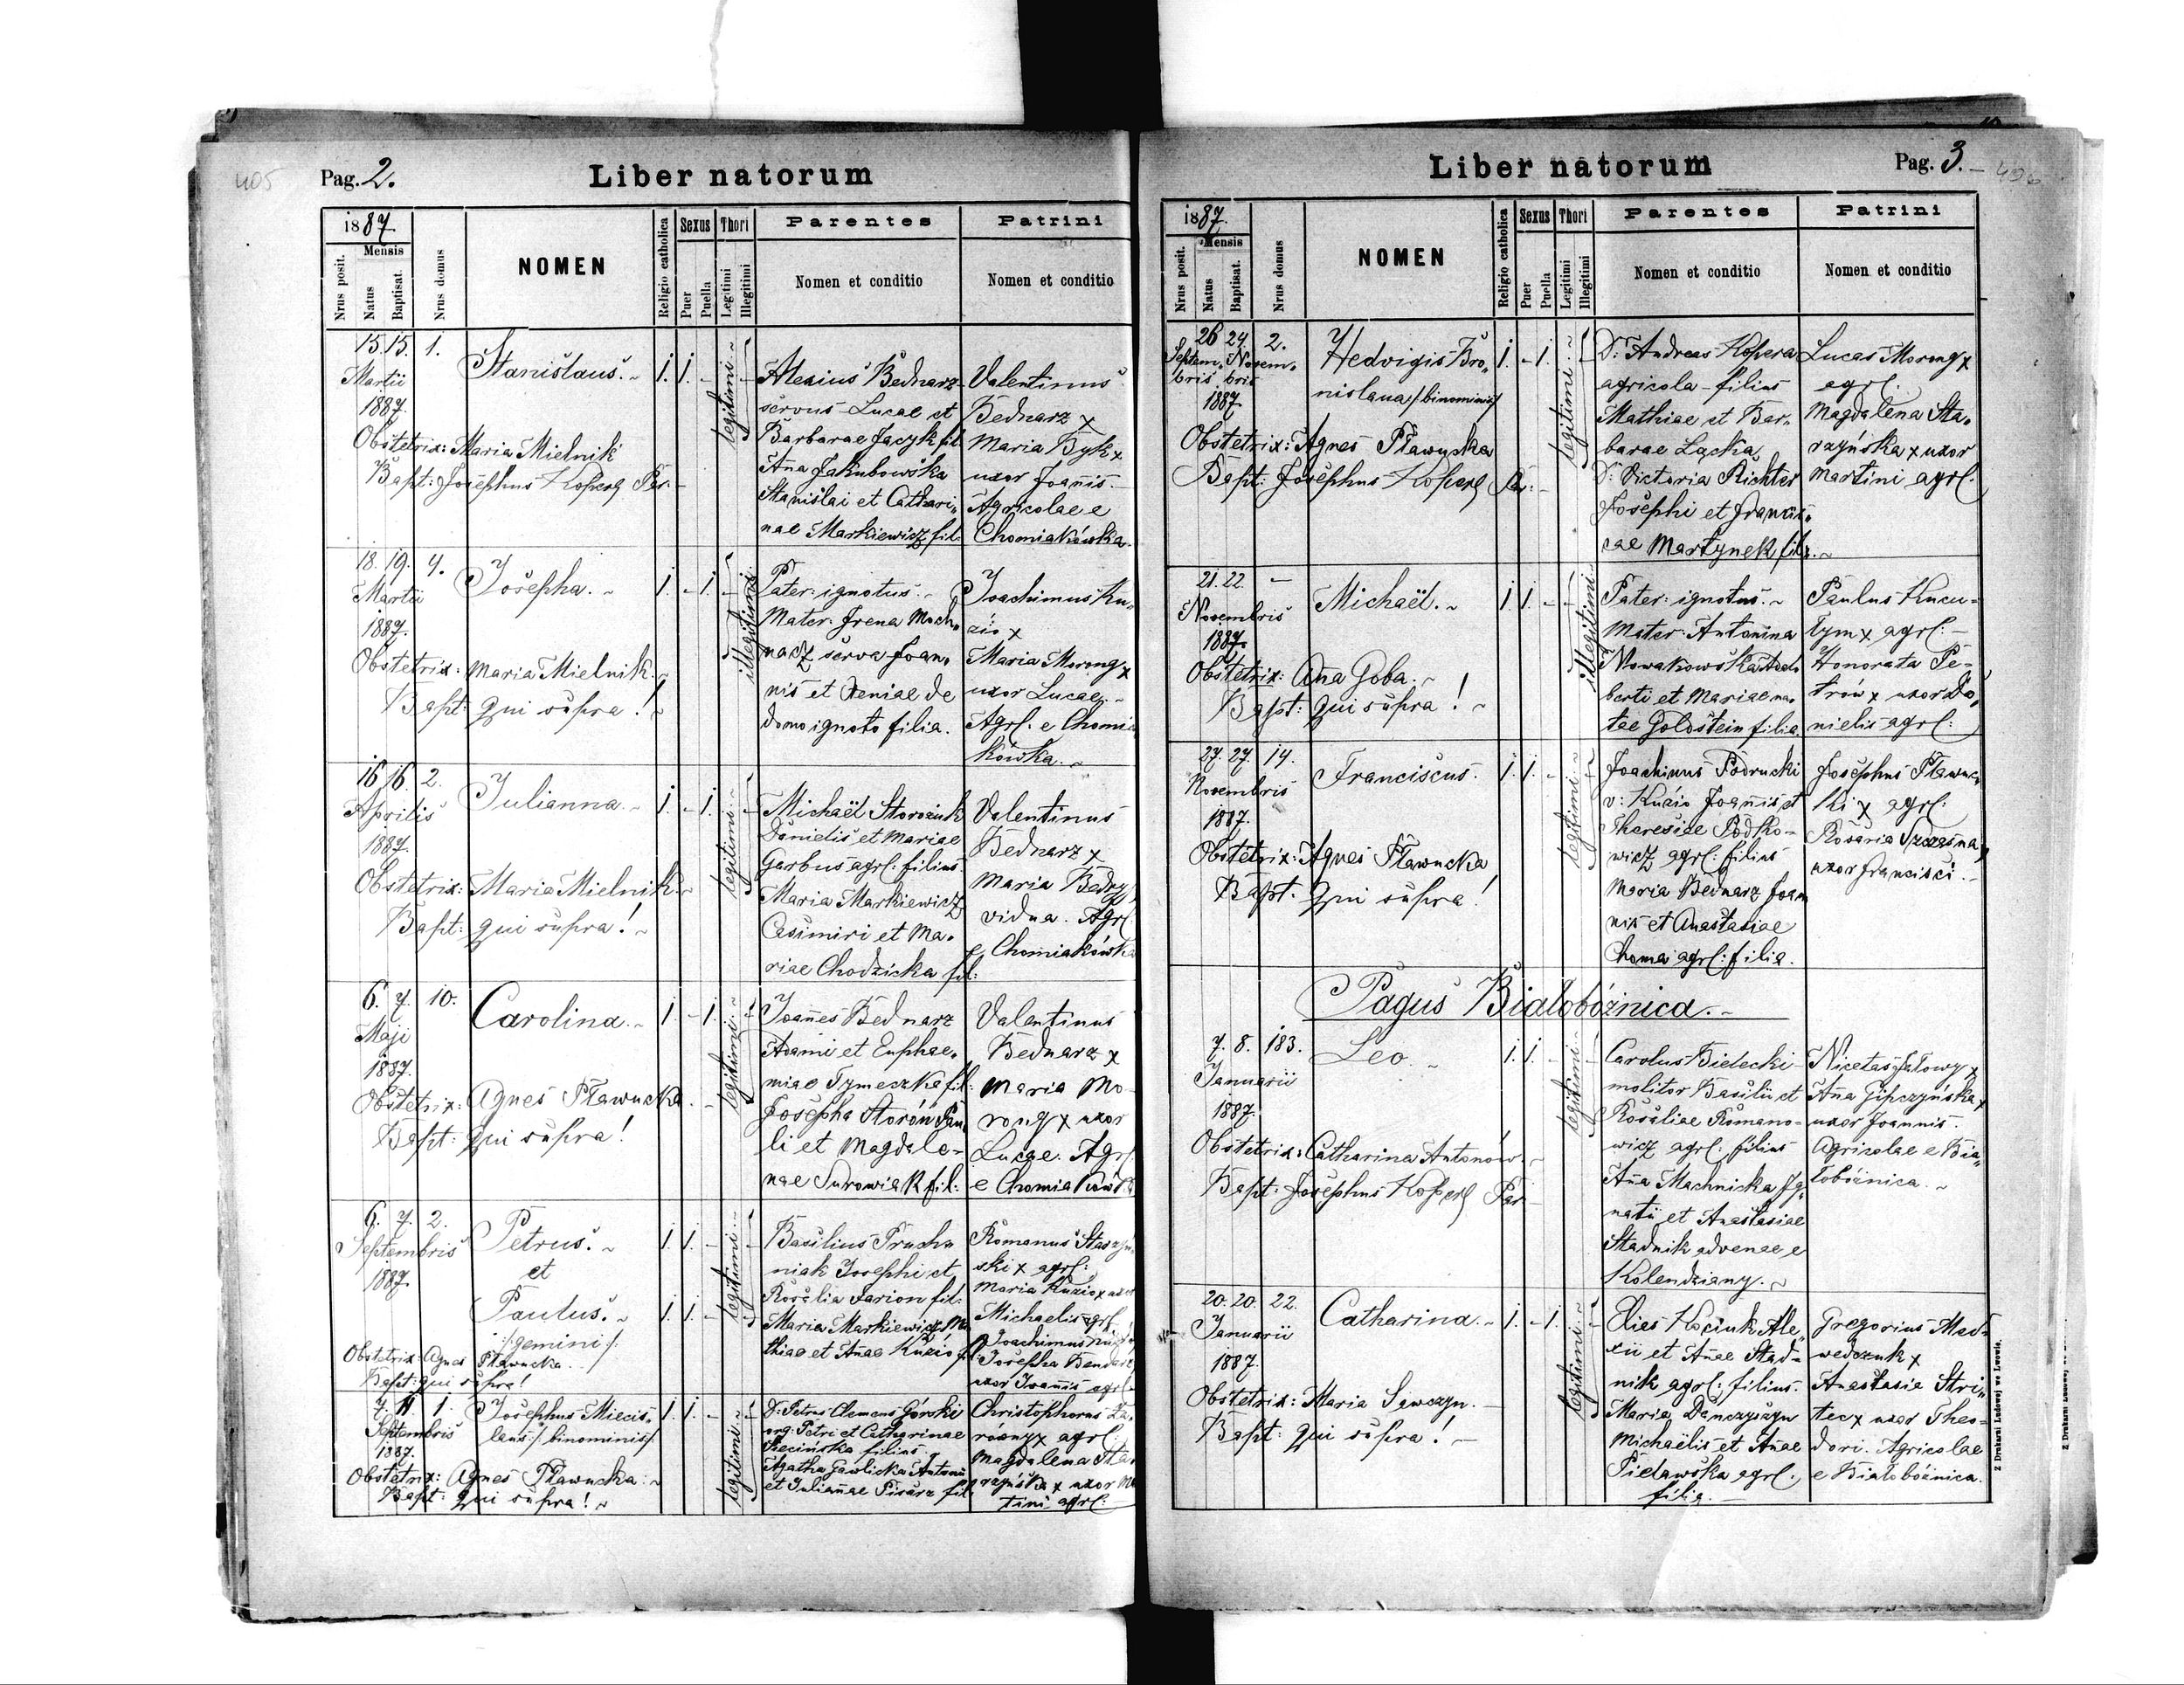 405
Pag. 2.
Liber natorum
1887
Mensis
Nrus posit.
Natus
Baptisat.
Nrus domus
NOMEN
Religio catholica
Sexus
Puer
Puella
Thori
Legitimi
Illegitimi
Parentes
Nomen et conditio
Patrini
Nomen et conditio
15. 15. 1.
Martii
1887.
Stanislaus.
1. 1. -
legitimi
Obstetrix: Maria Mielnik
Bapt: Josephus Koperg Par.
Alexius Bednarz
servus Lucae et
Barbarae Jacyk fil
Anna Jakubowska
Stanislai et Cathari„
nae Markiewicz fil:
Valentinus
Bednarz x
Maria Byk x
uxor Joanis.
Agricolae e
Chomiakówka.
18. 19. 4.
Martii
1887.
Josepha.
1. - 1.
illegitimi
Obstetrix: Maria Mielnik.
Bapt: qui supra!
Pater: ignotus.
Mater: Irena Moch„
nacz serva Joan„
nis et Xeniae de
domo ignoto filia.
Joachimus Ku„
zio x
Maria Morong x
uxor Lucae.
Agrl. e Chomia
kówka.
16 16 2.
Aprilis
1887.
Julianna.
1. - 1.
legitimi
Obstetrix: Maria Mielnik
Bapt: qui supra!
Michaël Storozuk
Danielis et Mariae
Garbus agrl: filius.
Maria Markiewicz
Casimiri et Ma„
riae Chodzicka fil:
Valentinus
Bednarz x
Maria
vidua. Agrl
e Chomiakówka
6. 7. 10.
Maji
1887.
Carolina.
1. - 1.
legitimi
Obstetrix: Agnes Pławucka.
Bapt: qui supra!
Joannes Bednarz
Adami et Euphae„
miae Tymeczka fil:
Josepha Storów Pau
li et Magdale-
nae Surowiak fil:
Valentinus
Bednarz x
Maria Mo-
rong x uxor
Lucae. Agrl
e Chomiakówk
6. 7. 2.
Septembris
1887.
Petrus.
et
Paulus.
/:gemini:/
1. 1. -
1. 1. -
legitimi
Obstetrix: Agnes Pławucka.
Bapt: qui supra!
Basilius Prucha
niak Josephi et
Rosalia Farion fil:
Maria Markiewicz Ma
thiae et Annae Kuzio
Romanus Staszyń
ski x agrl:
Maria Kuzio x uxor
Michaelis agrl
Joachimus
Josepha
uxor Joannis agrl
7. 11. 1.
Septembris
1887.
Josephus Miecis„
laus /: binominis:/
1. 1. -
legitimi
Obstetrix: Agnes Pławucka.
Bapt: qui supra!
D: Petrus Clemens Górski
org: Petri et Catharinae
filius.
Agatha Gawlicka Antonii
et Juliannae Pisarz fil:
Christophorus
x agrl
Magdalena Sta
rzyńska x uxor Mar
tini agrl:
Liber natorum
Pag. 3.
1887.
Mensis
Nrus posit.
Natus
Baptisat.
Nrus domus
NOMEN
Religio catholica
Sexus
Puer
Puella
Thori
Legitimi
Illegitimi
Parentes
Nomen et conditio
Patrini
Nomen et conditio
26 24. 2.
Septem„ Novem„
bris bris
1887.
Hedvigis Bro„
nislava /: binominis:/
1. - 1.
legitimi
Obstetrix: Agnes Pławucka
Bapt: Josephus Koperg Par:
D: Andreas Kopera
agricola filius
Mathiae et Bar„
barae Lącka
D: Victoria Richter
Josephi et Francis„
cae Martynek filia.
Lucas Morong x
agrl.
Magdalena Sta„
rzyńska x uxor
Martini agrl.
21. 22. -
Novembris
1887.
Michaël.
1. 1. -
illegitimi
Obstetrix: Ana Goba.
Bapt: qui supra!
Pater: ignotus.
Mater: Antonina
Nowakowska Adal
berti et Mariae na„
tae Goldstein filia.
Paulus Kucu-
łym x agrl:
Honorata Pe-
trów x uxor Da„
nielis agrl:
27. 27. 14.
Novembris
1887.
Franciscus.
1. 1. -
legitimi
Obstetrix: Agnes Pławucka
Bapt. qui supra!
Joachimus Podrucki
v: Kuzio Joannis et
Theresiae Podko-
wicz agrl: filius
Maria Bednarz Joan
nis et Anastasiae
Choma agrl: filia.
Josephus Pławuc„
ki x agrl:
Rosaria Szczesna
uxor Francisci.
Pagus Białobóżnica.
7. 8. 183.
Januarii
1887.
Leo.
1. 1. -
legitimi
Obstetrix: Catharina Antonów.
Bapt: Josephus Koperg Par
Carolus Bielecki
molitor Basilii et
Rosaliae Romano-
wicz agrl: filius
Anna Machnicka Ig„
natii et Anastasiae
Stadnik advenae e
Kolendziany.
Nicetas Jałowy x
Anna Gipczyńska x
uxor Joannis.
Agricolae e Bia„
łobóżnica.
20. 20. 22.
Januarii
1887.
Catharina.
1. - 1.
legitimi
Obstetrix: Maria Senczyn.
Bapt: qui supra!
Elias Kociuk Ale„
xii et Annae Stad-
nik agrl: filius.
Maria Danczyszyn
Michaëlis et Annae
Pielawska agrl:
filia.
Gregorius Med-
wedczuk x
Anastasia Stri„
tec x uxor Theo-
dori. Agricolae
e Białobóżnica.
Z Drukarni Ludowej we Lwowie.